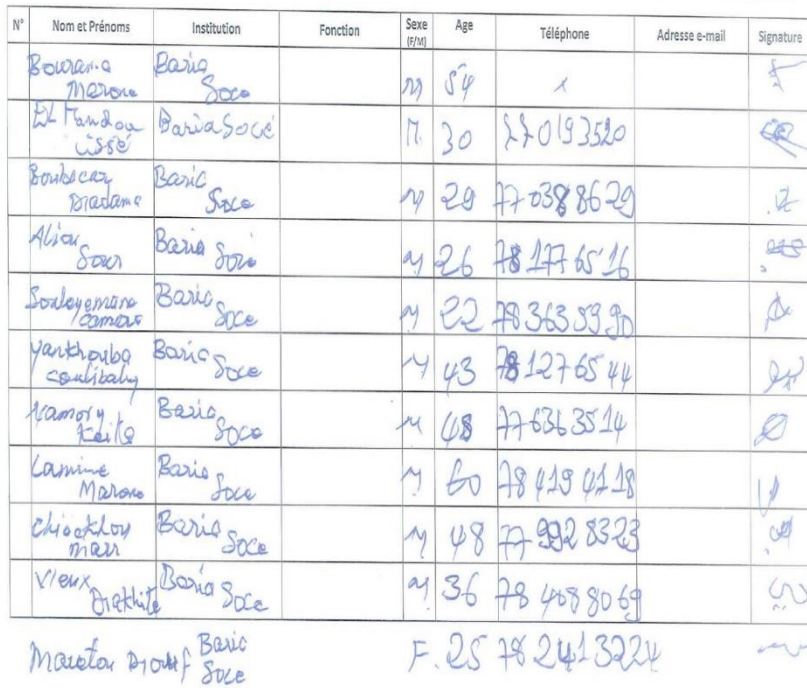 N° Nom et Prénoms Institution Fonction Sexe (F/M) Age Téléphone Adresse e-mail Signature
Bourama Marone Baria Soce M 54 x
El Mandou cissé Baria Socé M. 30 77 0193520
Boubacar Diadama Baria Soce M 29 77 038 86 29
Aliou Sour Baria Soce M 26 78 177 65 16
Souleymane camara Baria Soce M 22 78 363 59 90
Yankhouba coulibaly Baria Soce M 43 78 127 65 44
Kamory Keita Baria Soce M 48 77 636 35 14
Lamine Marone Baria Soce M 60 78 419 41 18
Marr Baria Soce M 48 77 992 83 23
Vieux Diakhité Baria Soce M 36 78 408 80 69
Maraton Diouf Baria Soce F. 25 78 241 32 24